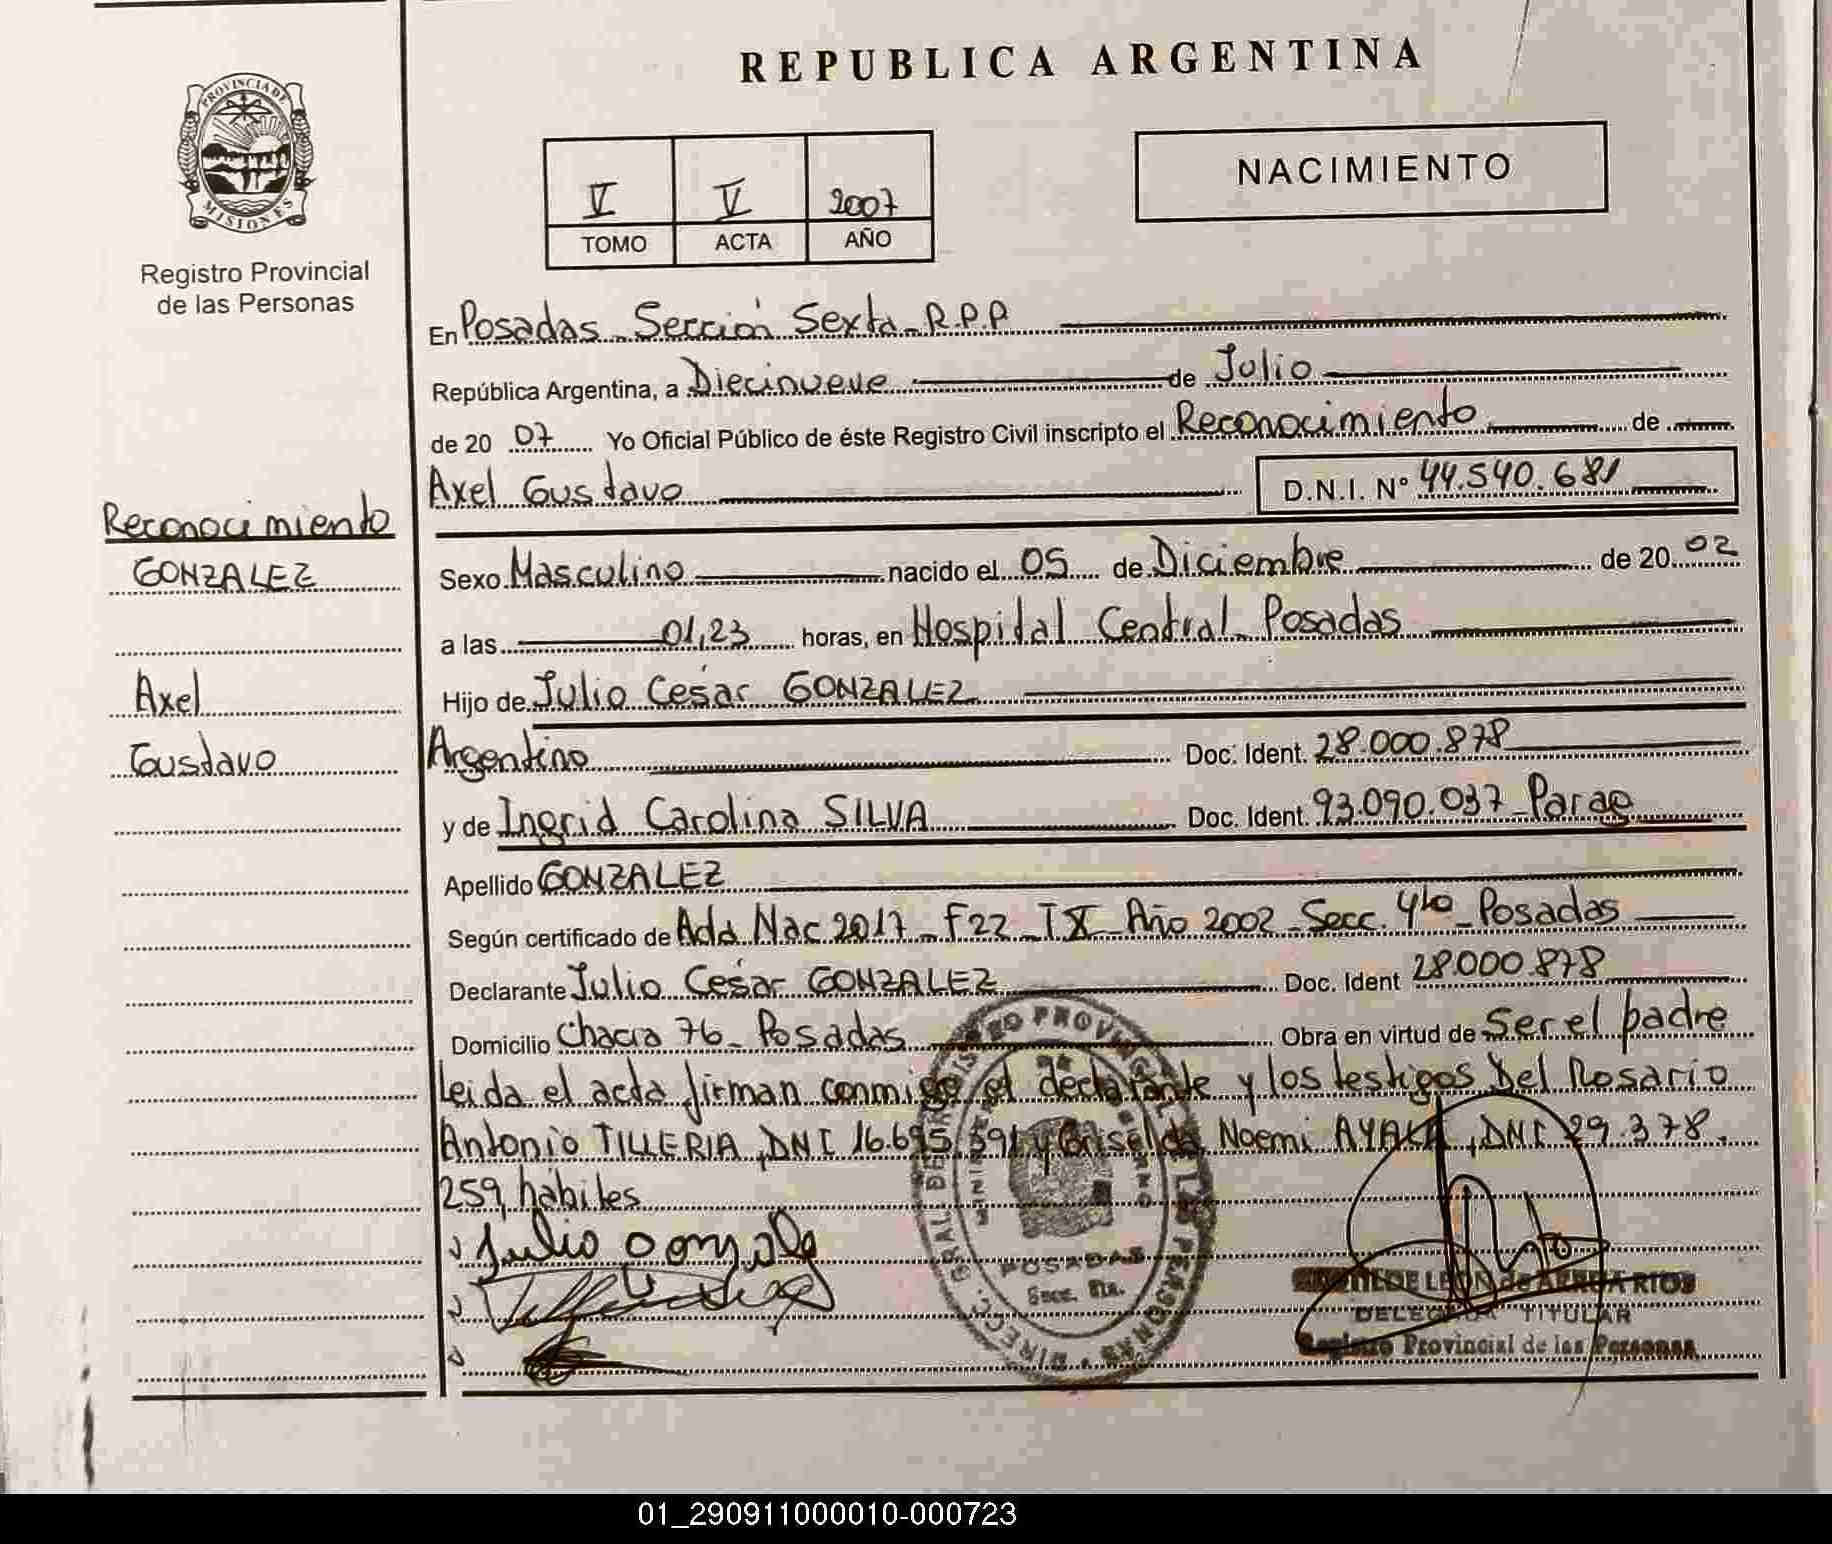 REPUBLICA ARGENTINA
PROVINCIA DE
MISIONES
Registro Provincial
de las Personas
V V 2007
TOMO ACTA AÑO
NACIMIENTO
En Posadas Sección Sexta R.P.P
República Argentina, a Diecinueve de Julio
de 20 07 Yo Oficial Público de éste Registro Civil inscripto el Reconocimiento de
Axel Gustavo D.N.I. Nº 44.540.681
Reconocimiento
GONZALEZ
Axel
Gustavo
Sexo Masculino nacido el 05 de Diciembre de 20 02
a las 01,23 horas, en Hospital Central Posadas
Hijo de Julio César GONZALEZ
Argentino Doc. Ident. 28.000.878
y de Ingrid Carolina SILVA Doc. Ident. 93.090.037 Parag
Apellido GONZALEZ
Según certificado de Acta Nac 2017 F22 T X Año 2002 Secc. 4to Posadas
Declarante Julio César GONZALEZ Doc. Ident 28.000.878
Domicilio Chacra 76 Posadas Obra en virtud de Ser el padre
Leida el acta firman conmigo el declarante y los testigos Del Rosario
Antonio TILLERIA, DNI 16.695.391 y Griselda Noemi AYALA, DNI 29.378.
259, habiles
Julio Gonzale
POSADAS
Secc. 6ta.
DELEGADA TITULAR
Registro Provincial de las Personas
01_290911000010-000723